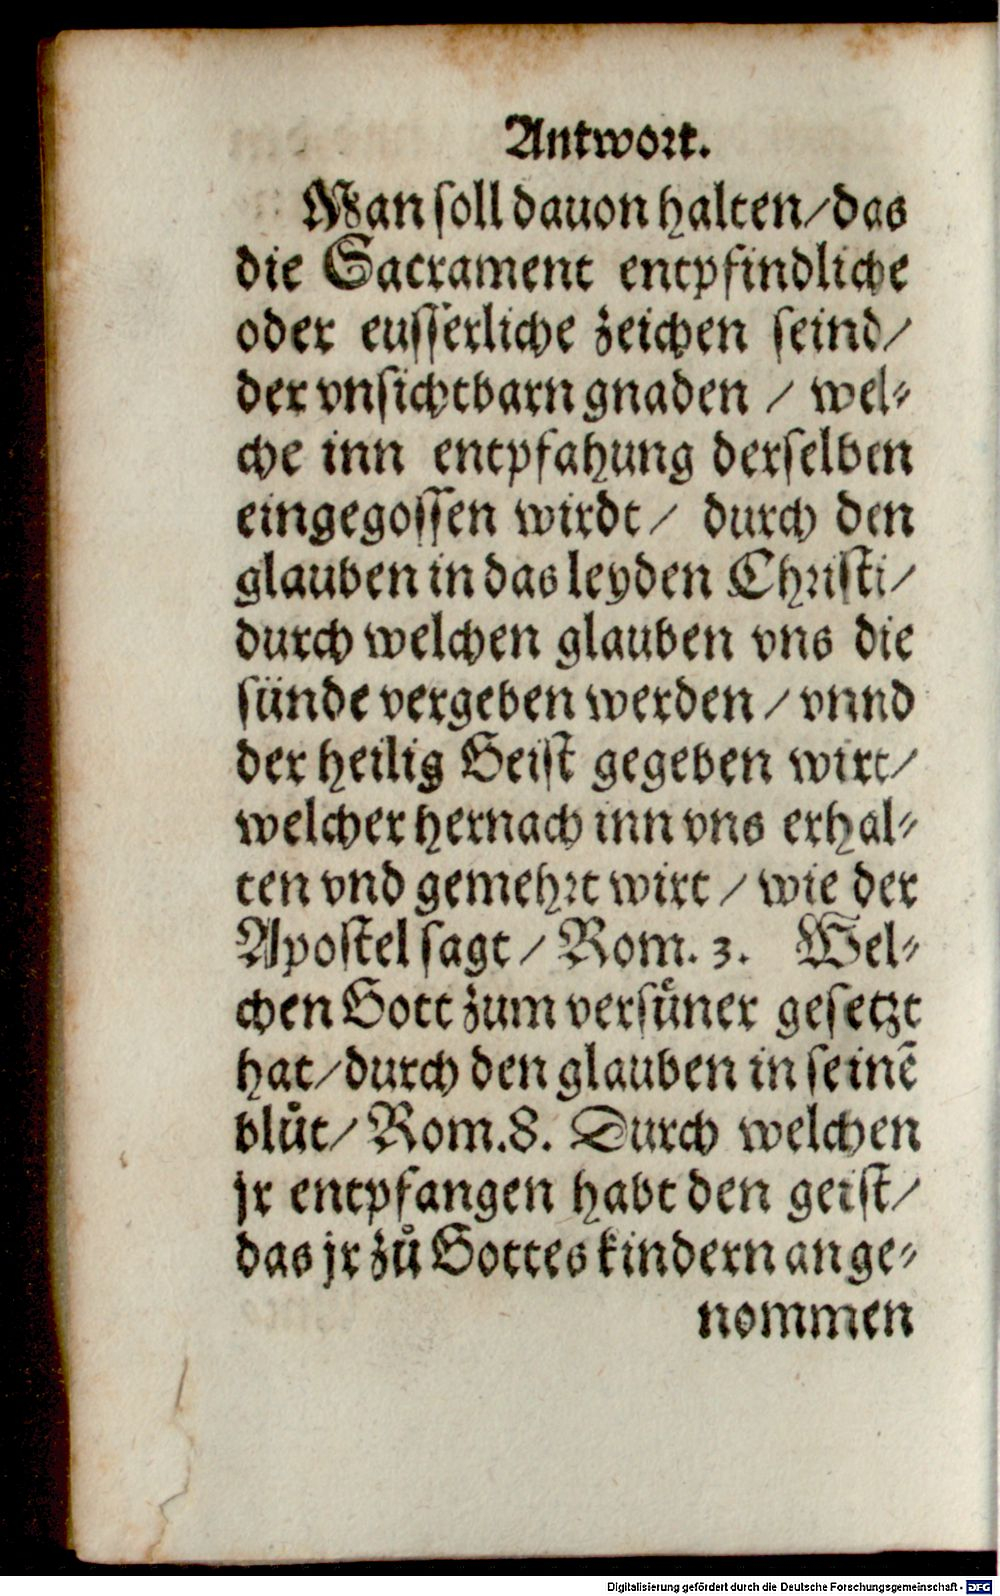 Antwort.
Man soll dauon halten/das
die Sacrament entpfindliche
oder eusserliche zeichen seind/
der vnsichtbarn gnaden / wel⸗
che inn entpfahung derselben
eingegossen wirdt / durch den
glauben in das leyden Christi/
durch welchen glauben vns die
sünde vergeben werden / vnnd
der heilig Geist gegeben wirt/
welcher hernach inn vns erhal⸗
ten vnd gemehrt wirt / wie der
Apostel sagt / Rom. 3. Wel⸗
chen Gott zum versuͤner gesetzt
hat/durch den glauben in seinē
bluͦt/ Rom. 8. Durch welchen
jr entpfangen habt den geist/
das jr zuͦ Gottes kindern ange⸗
nommen
Digitalisierung gefördert durch die Deutsche Forschungsgemeinschaft - DFG